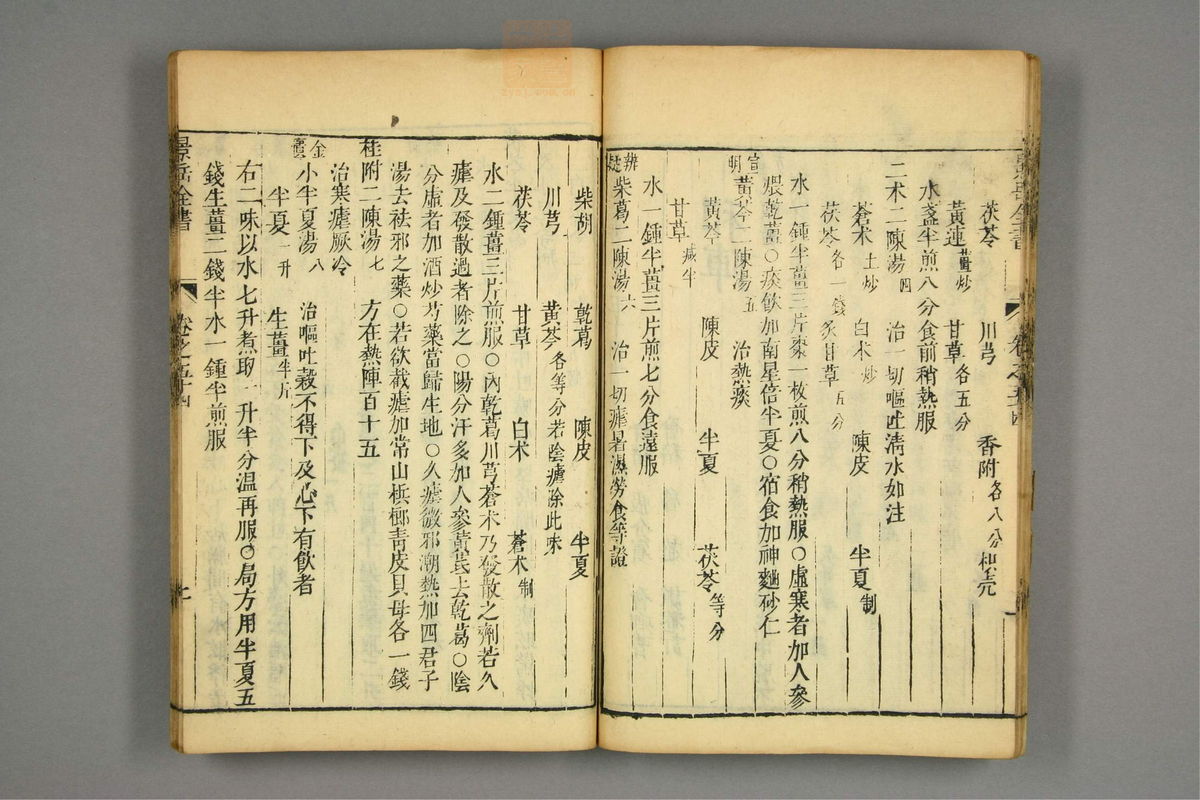 茯苓 川芎 香附各八分 枳壳
黃連薑炒 甘草各五分
水盞半煎八分食前稍熱服
二术二陳湯四 治一切嘔吐清水如注
蒼术土炒 白术炒 陳皮 半夏制
茯苓各一錢 炙甘草五分
水一鍾半薑三片棗一枚煎八分稍熱服○虛寒者加人參
煨乾薑○痰飲加南星倍半夏○宿食加神麯砂仁
宣明黃芩二陳湯五 治熱痰
黃芩 陳皮 半夏 茯苓等分
甘草減半
水一鍾半薑三片煎七分食遠服
辨疑柴葛二陳湯六 治一切瘧暑濕勞食等證
柴胡 乾葛 陳皮 半夏
川芎 黃芩各等分若陰瘧除此味
茯苓 甘草 白术 蒼术制
水二鍾薑三片煎服○內乾葛川芎蒼术乃發散之劑若久
瘧及發散過者除之○陽分汗多加人參黃芪去乾葛○陰
分虛者加酒炒芍藥當歸生地○久瘧微邪潮熱加四君子
湯去祛邪之藥○若欲截瘧加常山梹榔青皮貝母各一錢
桂附二陳湯七 方在熱陣百十五
治寒瘧厥冷
金匱小半夏湯八 治嘔吐穀不得下及心下有飲者
半夏一升 生薑半斤
右二味以水七升煮取一升半分溫再服○局方用半夏五
錢生薑二錢半水一鍾半煎服
景岳全書
卷之五十四